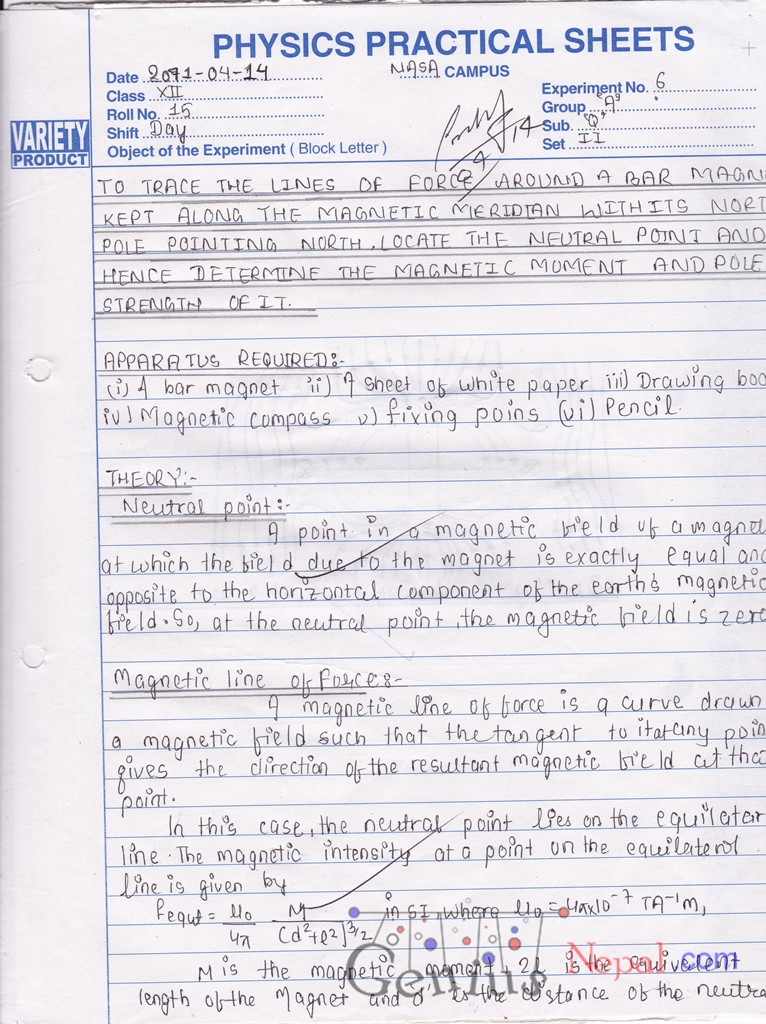 PHYSICS PRACTICAL SHEETS
Date 2071-04-14
NASA CAMPUS
Class XII
Experiment No. 6
Roll No. 15
Group "A"
Shift Day
Sub. "Q"
Object of the Experiment ( Block Letter )
Set II
VARIETY
PRODUCT
TO TRACE THE LINES OF FORCE AROUND A BAR MAGN
KEPT ALONG THE MAGNETIC MERIDIAN WITH ITS NORT
POLE POINTING NORTH. LOCATE THE NEUTRAL POINT AND
HENCE DETERMINE THE MAGNETIC MOMENT AND POLE
STRENGTH OF IT.
APPARATUS REQUIRED:-
(i) A bar magnet ii) A sheet of white paper iii) Drawing boa
iv) Magnetic compass v) fixing poins (vi) Pencil.
THEORY:-
Neutral point:-
A point in a magnetic field of a magne
at which the field due to the magnet is exactly equal and
opposite to the horizontal component of the earth's magnetic
field. So, at the neutral point, the magnetic field is zero
Magnetic line of Force:-
A magnetic line of force is a curve drawn
a magnetic field such that the tangent to it at any poin
gives the direction of the resultant magnetic field at tha
point.
In this case, the neutral point lies on the equilator
line. The magnetic intensity at a point on the equilaterol
line is given by
Fequt = μ0/4π M/(d²+l²)^3/2 in SI, where μ0 = 4π×10⁻⁷ TA⁻¹m,
M is the magnetic moment, 2l is the equivalent
length of the Magnet and d is the distance of the neutra
Genius Nepal.com